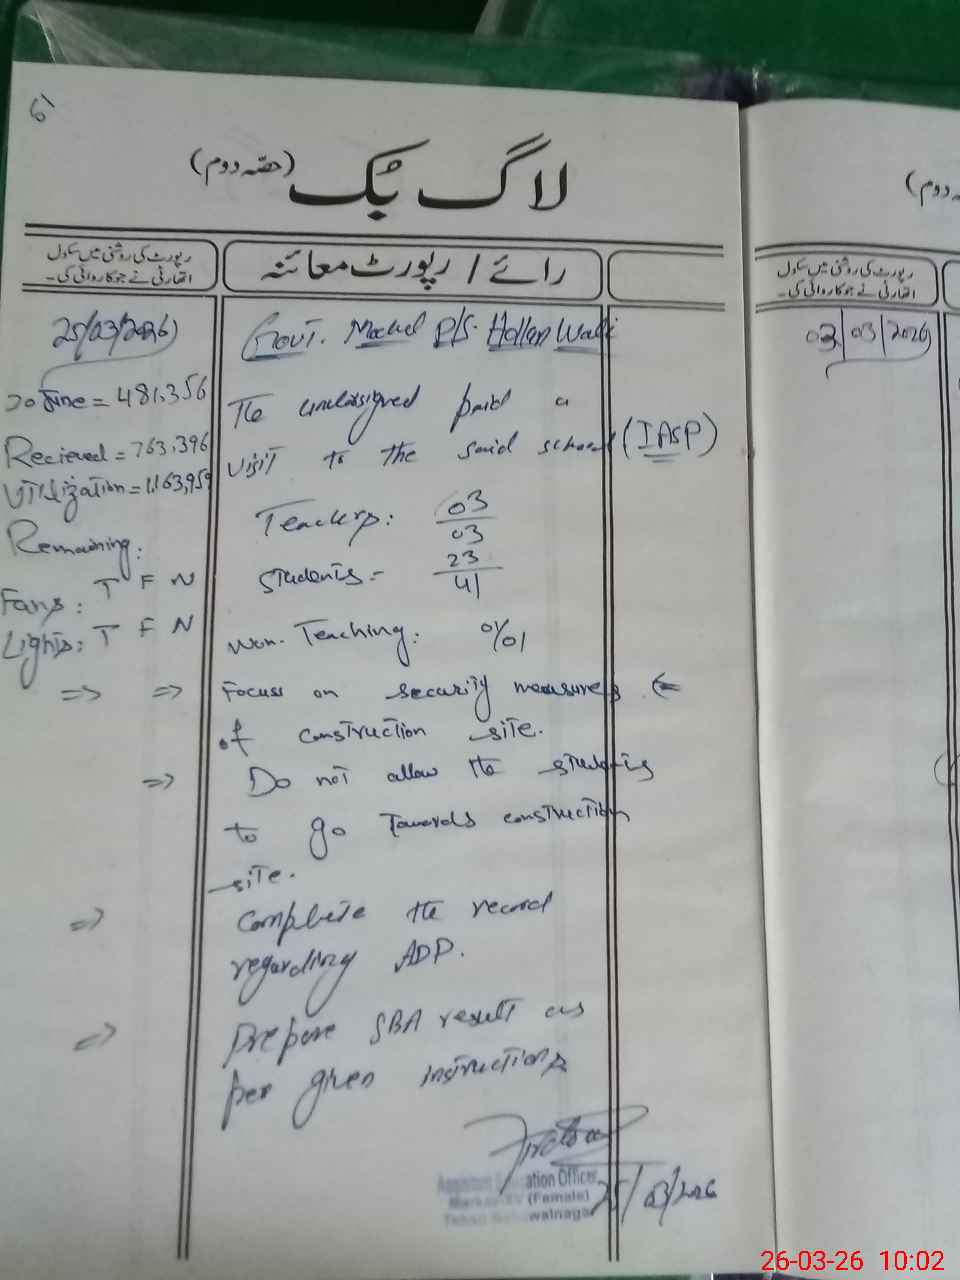 61
لاگ بک (حصہ دوم)
رپورٹ کی روشنی میں سکول
اتھارٹی نے جو کاروائی کی۔
رائے / رپورٹ معائنہ
25/03/2026
Govt. Model P/S. Wali
30 June = 481,356
Recieved = 763,396
UTilization = 1,163,959
Remaining:
Fans: T F N
Lights: T F N
The undersigned paid a
visit to the said school (IASP)
Teachers: 03/03
Students = 23/41
Non-Teaching: 0/01
⇒ ⇒ Focus on security measures ⇐
of construction site.
⇒ Do not allow the students
to go Towards construction
site.
⇒ Complete the record
regarding ADP.
⇒ Prepare SBA result as
per given instructions
Assistant Education Officer
Markaz (Female)
Tehsil Bahawalnagar
25/03/2026
دوم)
رپورٹ کی روشنی میں سکول
اتھارٹی نے جو کاروائی کی۔
03/03/2026
26-03-26 10:02